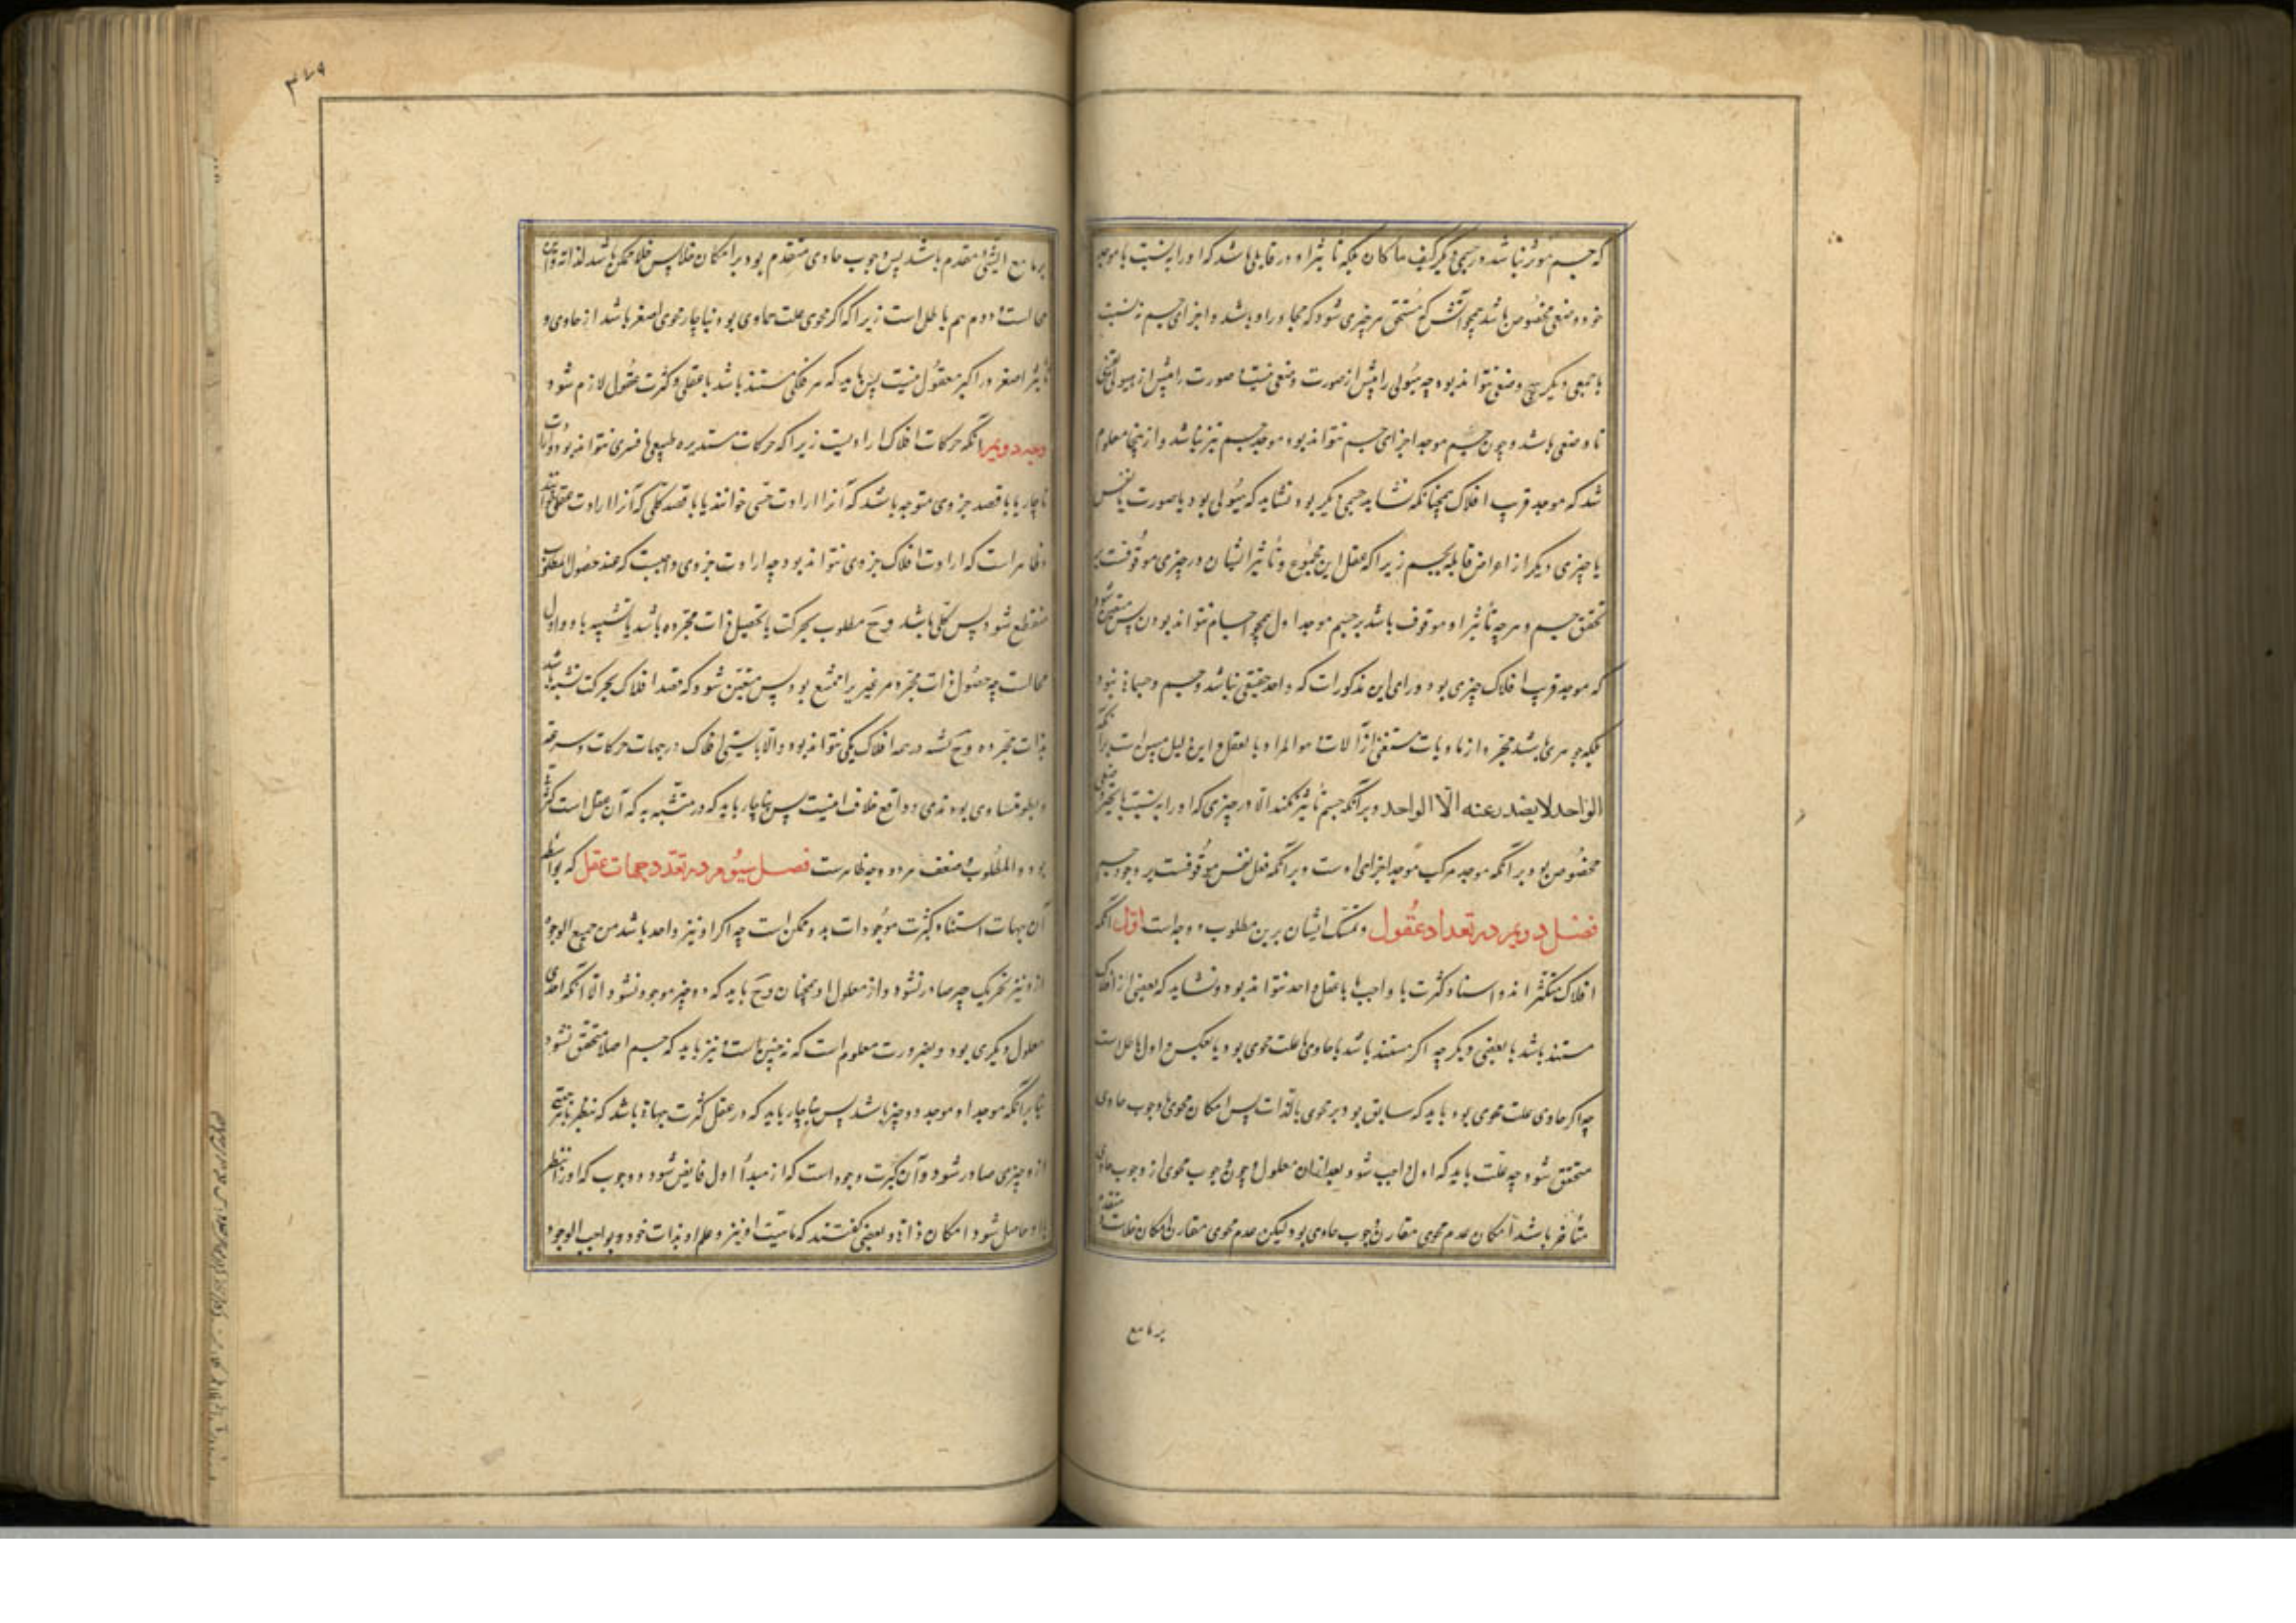 که جسم مؤثر نباشد در جسمی دیگر کیف ما کان بلکه تاثیر او در قابلی باشد که او را به نسبت با موجد
خود وضعی مخصوص باشد همچو آتش که مسخن هر چیزی شود که مجاور او باشد و اجزای جسم نه نسبت
با جمعی دیگر هیچ وضعی نتواند بود چه هیولی را پیش از صورت وضعی نیست و صورت را پیش از هیولی
تا وضعی باشد و چون جسم موجد اجزای جسم نتواند بود موجد جسم نیز نباشد و از اینجا معلوم
شد که موجد قریب افلاک همچنانکه نشاید جسمی دیگر بود نشاید که هیولی بود یا صورت یا نفس
یا چیزی دیگر از اعراض قایمه بجسم زیرا که عقل این مجموع و تأثیر ایشان در چیزی موقوفست بر
تحقق جسم و هرچه تأثیر او موقوف باشد بر جسم موجد اول همچو اجسام نتواند بودن پس متعین شود
که موجد قریب افلاک چیزی بود ورای این مذکورات که واحد حقیقی نباشد و جسم و جسمانی نبود
بلکه جوهری باشد مجرد از مادیات مستغنی از آلات و هو المراد بالعقل و این دلیل مبنی است بر آنکه
الواحد لا یصدر عنه الّا الواحد و بر آنکه جسم تأثیر نکند الّا در چیزی که او را به نسبت با تحیز وضعی
مخصوص بود و بر آنکه موجد مرکب موجد اجزای اوست و بر آنکه فعل نفس موقوفست بر وجود جسم
فصل دویم در تعداد عقول و تمسک ایشان برین مطلوب دو وجه است اول آنکه
افلاک متکثرند و استناد کثرت با واجب یا با عقل واحد نتواند بود و نشاید که بعضی از افلاک
مستند باشد با بعضی دیگر چه اگر مستند باشد یا حاوی علت محوی بود یا بعکس و اول باطل است
چه اگر حاوی علت محوی بود باید که سابق بود بر محوی بالذات پس امکان محوی با وجوب حاوی
متحقق شود چه علت باید که اول واجب شود بعد از آن معلول و چون وجوب محوی از وجوب حاوی
متأخر باشد امکان عدم محوی مقارن وجوب حاوی بود لیکن عدم محوی مقارن امکان خلاست و متقدم
بر ما مع
۳۷۹
بر ما مع الشئ مقدم باشد پس وجوب حاوی متقدم بود بر امکان خلا پس خلا ممکن باشد لذاته و این
محالست و دوم هم باطل است زیرا که اگر محوی علت حاوی بود بناچار محوی اصغر باشد از حاوی و
تأثیر اصغر در اکبر معقول نیست پس باید که هر فلکی مستند باشد با عقلی و کثرت عقول لازم شود
وجه دویم آنکه حرکات افلاک ارادیست زیرا که حرکات مستدیره طبیعی یا قسری نتواند بود و ارادت
ناچار یا با قصد جزوی متوجه باشد که آنرا ارادت حسی خوانند یا با قصد کلی که آنرا ارادت عقلی خوانند
و ظاهر است که ارادت افلاک جزوی نتواند بود چه ارادت جزوی واجبست که عند حصول المطلوب
منقطع شود پس کلی باشد و ح مطلوب بحرکت یا تحصیل ذات مجرده باشد یا تشبیه باو و اول
محالست چه حصول ذات مجرد مر غیر را ممتنع بود پس متعین شود که قصد افلاک بحرکت تشبه باشد
بذات مجرده و ح مشبه در همه افلاک یکی نتواند بود و الّا بایستی افلاک در جهات حرکات و سرعت
و بطو متساوی بودندی و واقع خلاف اینست پس بناچار باید که در متشبه به که آن عقل است کثرت
بود و هو المطلوب و ضعف هر دو وجه ظاهرست فصل سیوم در تعدد جهات عقل که بواسطه
آن جهات استناد کثرت موجودات بدو ممکن است چه اگر او نیز واحد باشد من جمیع الوجوه
ازو نیز جز یک چیز صادر نشود و از معلول او همچنان و ح باید که دو چیز موجود نشود الّا آنکه احدی
معلول دیگری بود و بضرورت معلوم است که نه چنین است و نیز باید که جسم اصلا متحقق نشود
بنا بر آنکه موجد او موجد دو چیز باشد پس بناچار باید که در عقل کثرت جهات باشد که بنظر با هر جهتی
ازو چیزی صادر شود و آن کثرت وجود است که از مبدأ اول فایض شود و وجوب که او را بنظر
با او حاصل شود و امکان ذاتی و بعضی گفتند که ماهیت او نیز و علم او بذات خود و بواجب الوجود